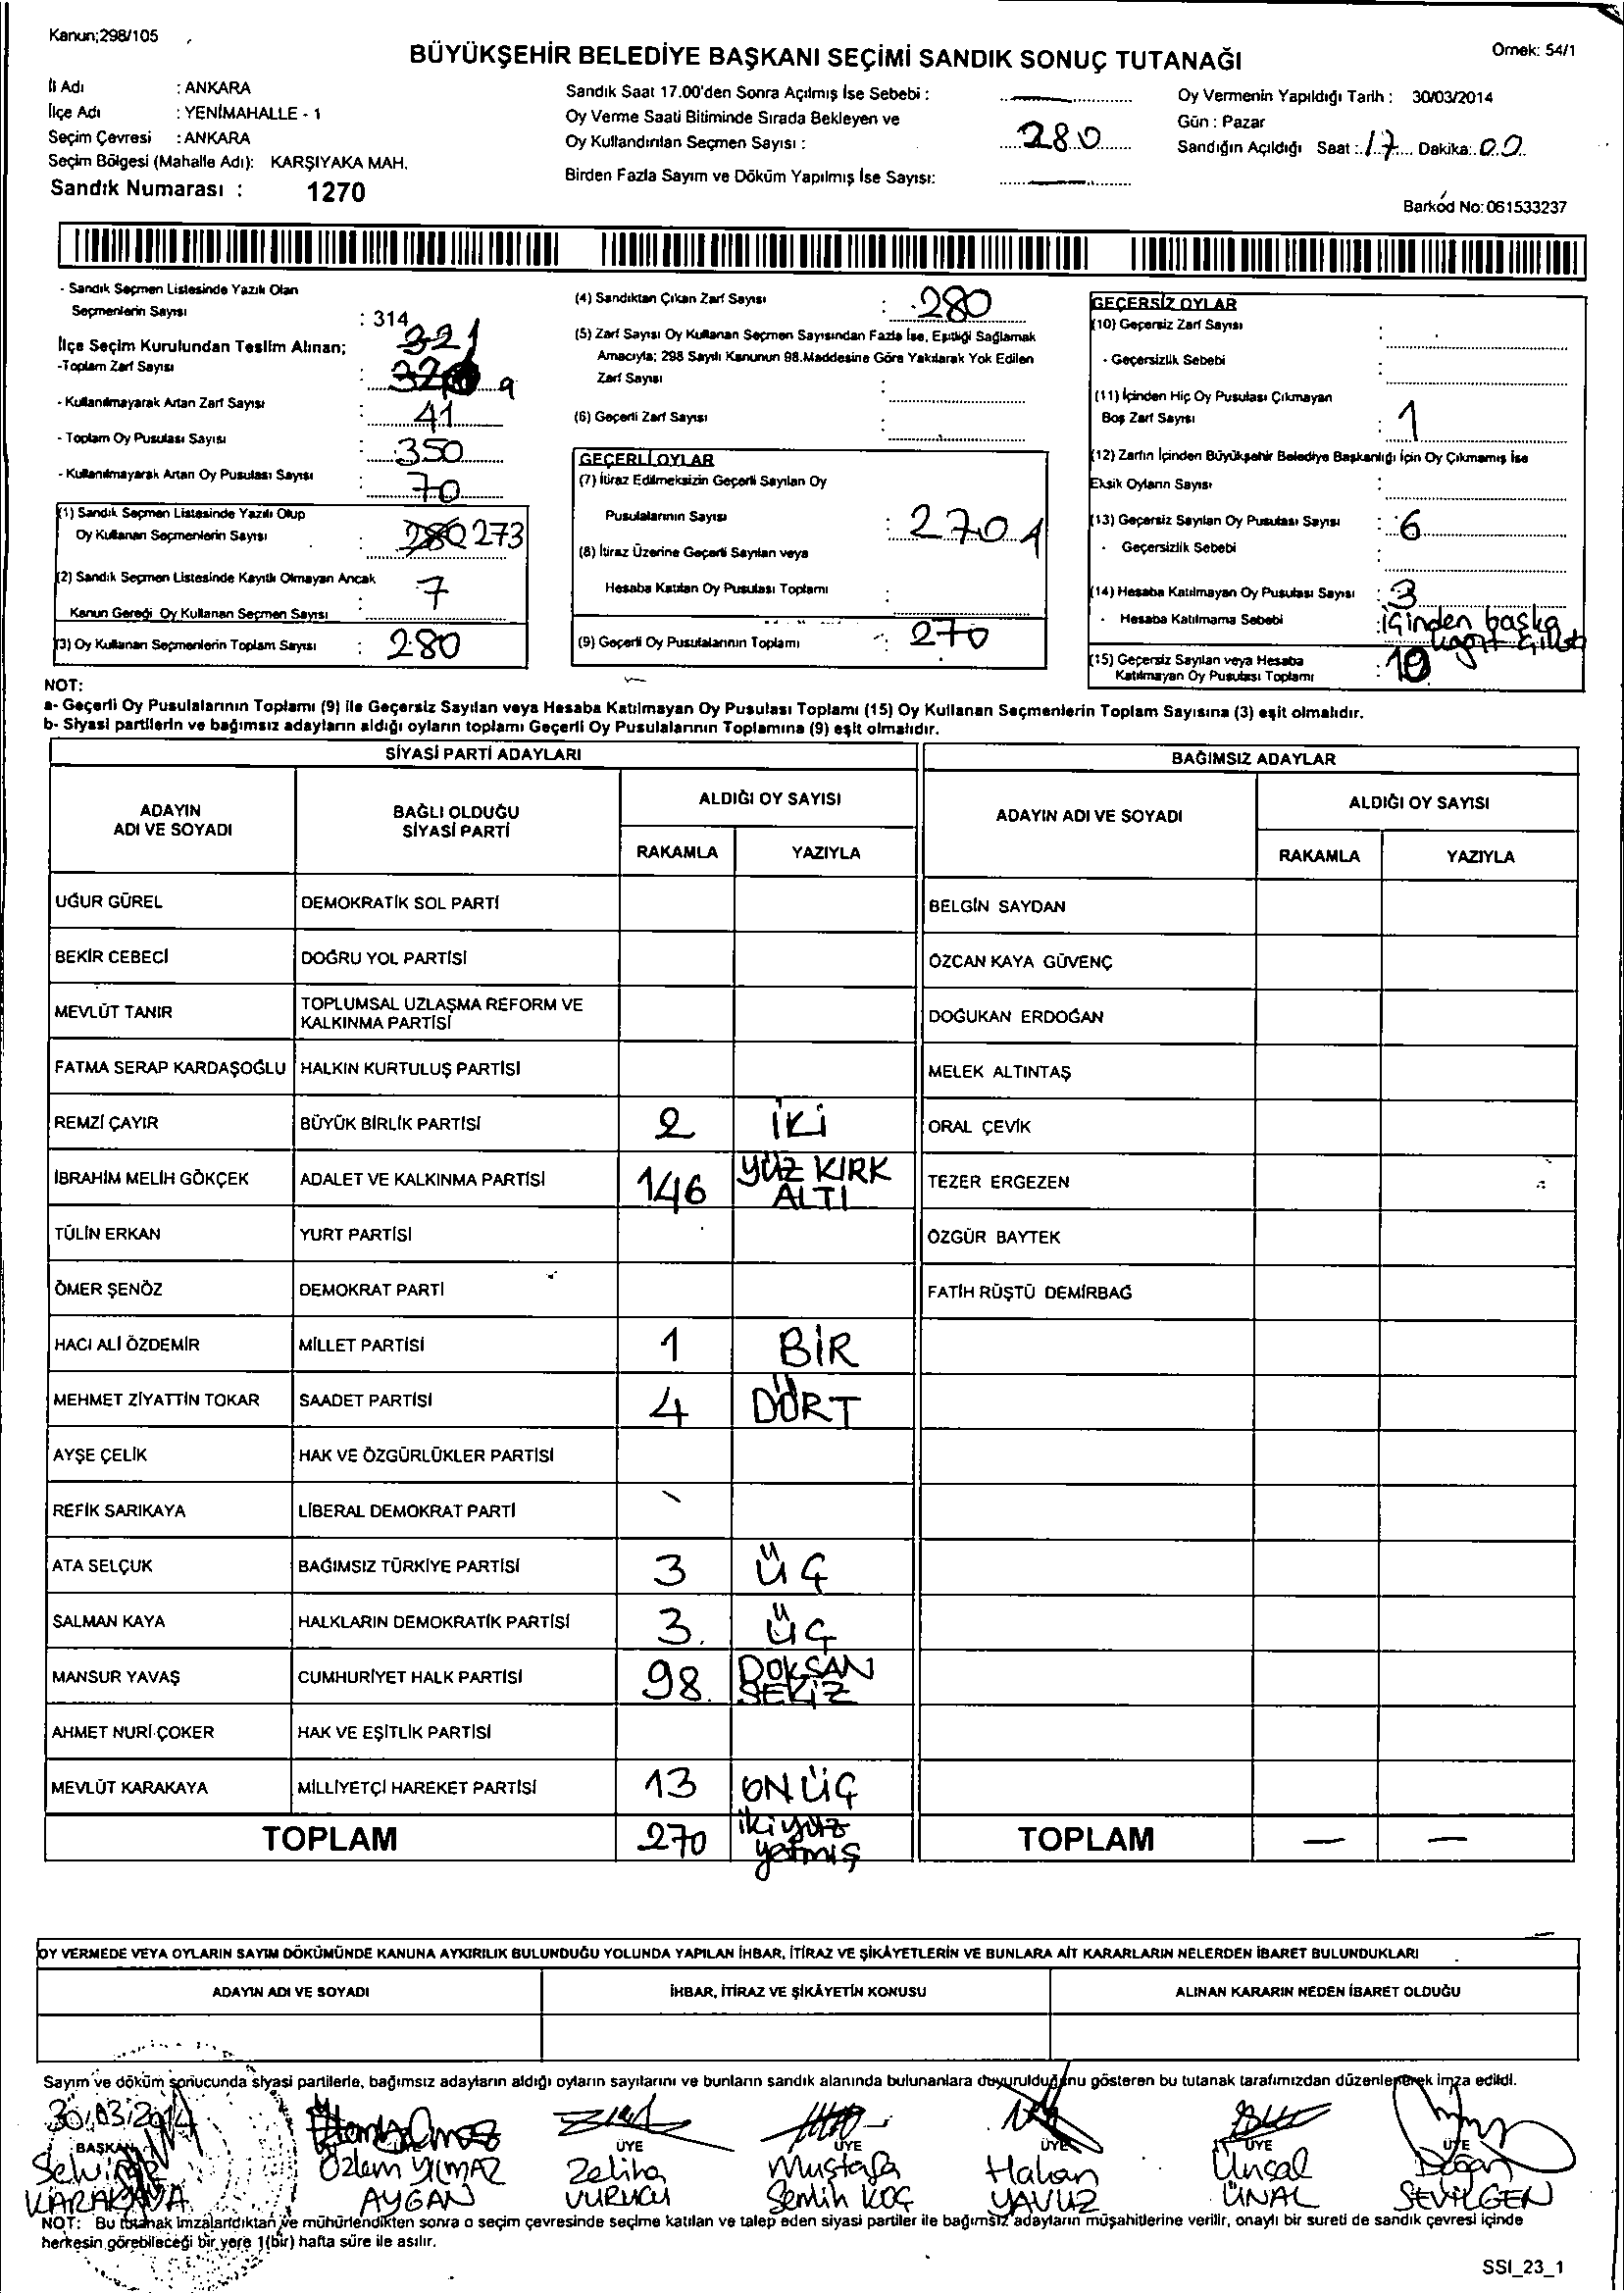 Kanun;298/105
Örnek: 54/1
BÜYÜKŞEHİR BELEDİYE BAŞKANI SEÇİMİ SANDIK SONUÇ TUTANAĞI
İl Adı : ANKARA
İlçe Adı : YENİMAHALLE - 1
Seçim Çevresi : ANKARA
Seçim Bölgesi (Mahalle Adı): KARŞIYAKA MAH.
Sandık Numarası : 1270
Sandık Saat 17.00'den Sonra Açılmış İse Sebebi :
Oy Verme Saati Bitiminde Sırada Bekleyen ve
Oy Kullandırılan Seçmen Sayısı : 280
Birden Fazla Sayım ve Döküm Yapılmış İse Sayısı:
Oy Vermenin Yapıldığı Tarih : 30/03/2014
Gün : Pazar
Sandığın Açıldığı Saat : 17 Dakika: 00
Barkod No:061533237
- Sandık Seçmen Listesinde Yazılı Olan
Seçmenlerin Sayısı : 314
İlçe Seçim Kurulundan Teslim Alınan; 321
-Toplam Zarf Sayısı :
- Kullanılmayarak Artan Zarf Sayısı : 41
- Toplam Oy Pusulası Sayısı : 350
- Kullanılmayarak Artan Oy Pusulası Sayısı : 70
(1) Sandık Seçmen Listesinde Yazılı Olup
Oy Kullanan Seçmenlerin Sayısı : 280 273
(2) Sandık Seçmen Listesinde Kayıtlı Olmayan Ancak
Kanun Gereği Oy Kullanan Seçmen Sayısı : 7
(3) Oy Kullanan Seçmenlerin Toplam Sayısı : 280
(4) Sandıktan Çıkan Zarf Sayısı : 280
(5) Zarf Sayısı Oy Kullanan Seçmen Sayısından Fazla İse, Eşitliği Sağlamak
Amacıyla; 298 Sayılı Kanunun 98.Maddesine Göre Yakılarak Yok Edilen
Zarf Sayısı :
(6) Geçerli Zarf Sayısı :
GEÇERLİ OYLAR
(7) İtiraz Edilmeksizin Geçerli Sayılan Oy
Pusulalarının Sayısı : 270
(8) İtiraz Üzerine Geçerli Sayılan veya
Hesaba Katılan Oy Pusulası Toplamı :
(9) Geçerli Oy Pusulalarının Toplamı : 270
GEÇERSİZ OYLAR
(10) Geçersiz Zarf Sayısı :
- Geçersizlik Sebebi :
(11) İçinden Hiç Oy Pusulası Çıkmayan
Boş Zarf Sayısı : 1
(12) Zarfın İçinden Büyükşehir Belediye Başkanlığı İçin Oy Çıkmamış İse
Eksik Oyların Sayısı :
(13) Geçersiz Sayılan Oy Pusulası Sayısı : 6
- Geçersizlik Sebebi :
(14) Hesaba Katılmayan Oy Pusulası Sayısı : 3
- Hesaba Katılmama Sebebi : içinden başka
(15) Geçersiz Sayılan veya Hesaba
Katılmayan Oy Pusulası Toplamı : 10
NOT:
a- Geçerli Oy Pusulalarının Toplamı (9) ile Geçersiz Sayılan veya Hesaba Katılmayan Oy Pusulası Toplamı (15) Oy Kullanan Seçmenlerin Toplam Sayısına (3) eşit olmalıdır.
b- Siyasi partilerin ve bağımsız adayların aldığı oyların toplamı Geçerli Oy Pusulalarının Toplamına (9) eşit olmalıdır.
SİYASİ PARTİ ADAYLARI
ADAYIN ADI VE SOYADI
BAĞLI OLDUĞU SİYASİ PARTİ
ALDIĞI OY SAYISI
RAKAMLA YAZIYLA
UĞUR GÜREL DEMOKRATİK SOL PARTİ
BEKİR CEBECİ DOĞRU YOL PARTİSİ
MEVLÜT TANIR TOPLUMSAL UZLAŞMA REFORM VE
KALKINMA PARTİSİ
FATMA SERAP KARDAŞOĞLU HALKIN KURTULUŞ PARTİSİ
REMZİ ÇAYIR BÜYÜK BİRLİK PARTİSİ 2 İKİ
İBRAHİM MELİH GÖKÇEK ADALET VE KALKINMA PARTİSİ 146 YÜZ KIRK
ALTI
TÜLİN ERKAN YURT PARTİSİ
ÖMER ŞENÖZ DEMOKRAT PARTİ
HACI ALİ ÖZDEMİR MİLLET PARTİSİ 1 BİR
MEHMET ZİYATTİN TOKAR SAADET PARTİSİ 4 DÖRT
AYŞE ÇELİK HAK VE ÖZGÜRLÜKLER PARTİSİ
REFİK SARIKAYA LİBERAL DEMOKRAT PARTİ
ATA SELÇUK BAĞIMSIZ TÜRKİYE PARTİSİ 3 ÜÇ
SALMAN KAYA HALKLARIN DEMOKRATİK PARTİSİ 3. ÜÇ
MANSUR YAVAŞ CUMHURİYET HALK PARTİSİ 98. DOKSAN
SEKİZ
AHMET NURİ ÇOKER HAK VE EŞİTLİK PARTİSİ
MEVLÜT KARAKAYA MİLLİYETÇİ HAREKET PARTİSİ 13 ON ÜÇ
TOPLAM 270 ikiyüz
yetmiş
BAĞIMSIZ ADAYLAR
ADAYIN ADI VE SOYADI
ALDIĞI OY SAYISI
RAKAMLA YAZIYLA
BELGİN SAYDAN
ÖZCAN KAYA GÜVENÇ
DOĞUKAN ERDOĞAN
MELEK ALTINTAŞ
ORAL ÇEVİK
TEZER ERGEZEN
ÖZGÜR BAYTEK
FATİH RÜŞTÜ DEMİRBAĞ
TOPLAM — —
OY VERMEDE VEYA OYLARIN SAYIM DÖKÜMÜNDE KANUNA AYKIRILIK BULUNDUĞU YOLUNDA YAPILAN İHBAR, İTİRAZ VE ŞİKÂYETLERİN VE BUNLARA AİT KARARLARIN NELERDEN İBARET BULUNDUKLARI
ADAYIN ADI VE SOYADI İHBAR, İTİRAZ VE ŞİKÂYETİN KONUSU ALINAN KARARIN NEDEN İBARET OLDUĞU
Sayım ve döküm sonucunda siyasi partilerle, bağımsız adayların aldığı oyların sayılarını ve bunların sandık alanında bulunanlara duyurulduğunu gösteren bu tutanak tarafımızdan düzenlenerek imza edildi.
30.03.2014
BAŞKAN ÜYE ÜYE ÜYE ÜYE ÜYE
Özlem YILMAZ Zeliha Mustafa Hakan Ünsal Doğan
KARAKAYA AYGAN VURUCU Semih KOÇ YAVUZ ÜNAL SEVİLGEN
NOT: Bu tutanak imzalandıktan ve mühürlendikten sonra o seçim çevresinde seçime katılan ve talep eden siyasi partiler ile bağımsız adayların müşahitlerine verilir, onaylı bir sureti de sandık çevresi içinde
herkesin görebileceği bir yere 1(bir) hafta süre ile asılır.
SSI_23_1